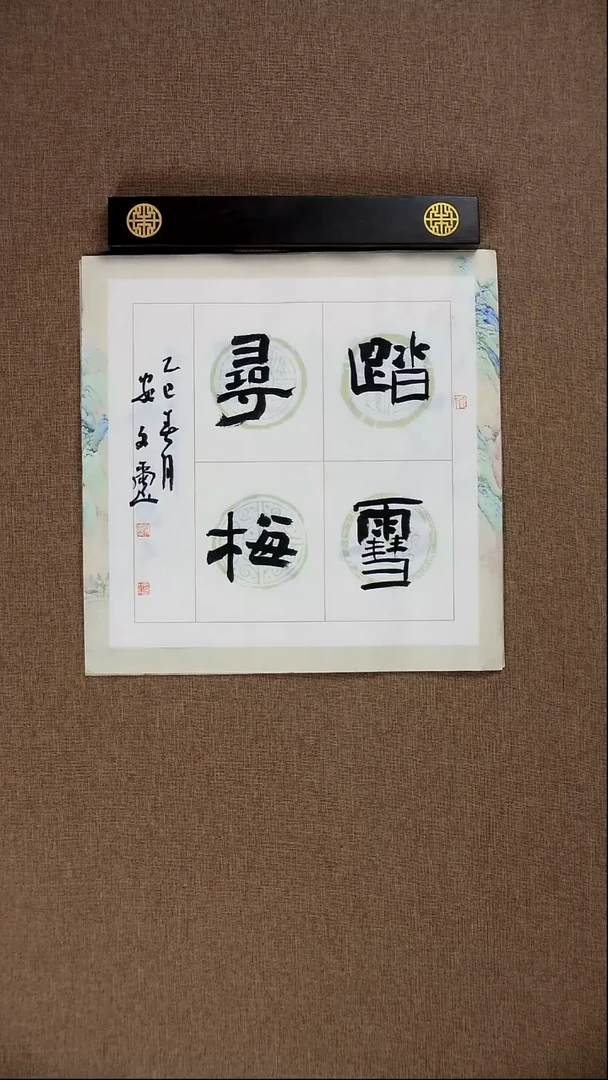 踏雪
尋梅
乙巳春月
安文靈